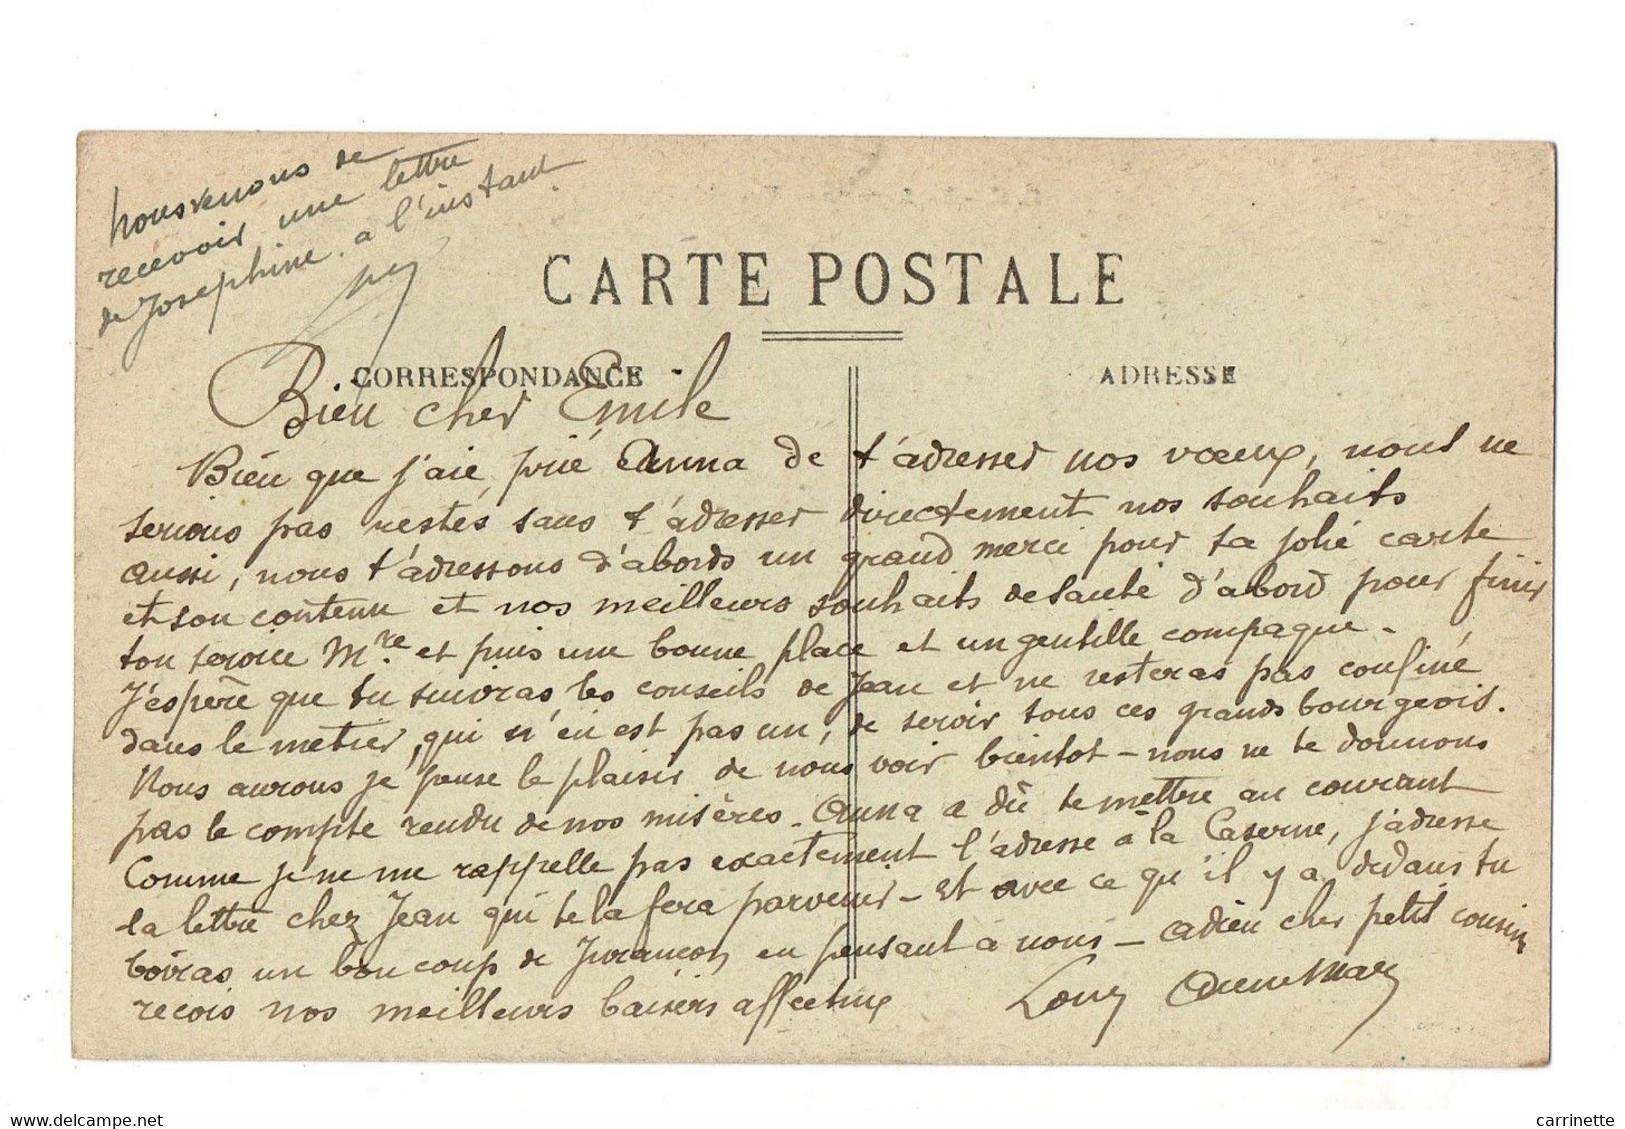 nous venons de
recevoir une lettre
de Josephine. a l'instant.
CARTE POSTALE
CORRESPONDANCE
ADRESSE
Bien cher Emile
Bien que j'aie prié Anna de t'adresser nos vœux, nous ne
serions pas restés sans t'adresser directement nos souhaits
aussi, nous t'adressons d'abords un grand merci pour ta jolie carte
et son contenu et nos meilleurs souhaits de santé d'abord pour finir
ton service Mre. et puis une bonne place et un gentille compagne.
J'espère que tu suivras les conseils de Jean et ne resteras pas confiné
dans le metier, qui n'en est pas un, de servir tous ces grands bourgeois.
Nous aurons je pense le plaisir de nous voir bientot - nous ne te donnons
pas le compte rendu de nos misères. Anna a dû te mettre au courant
Comme je ne me rappelle pas exactement l'adresse à la Caserne, j'adresse
la lettre chez Jean qui te la fera parvenir - et avec ce qu'il y a dedans tu
boiras un bon coup de Jurançon en pensant à nous - Adieu cher petit cousin
recois nos meilleurs baisers affectueux
Louis
carrinette
www.delcampe.net